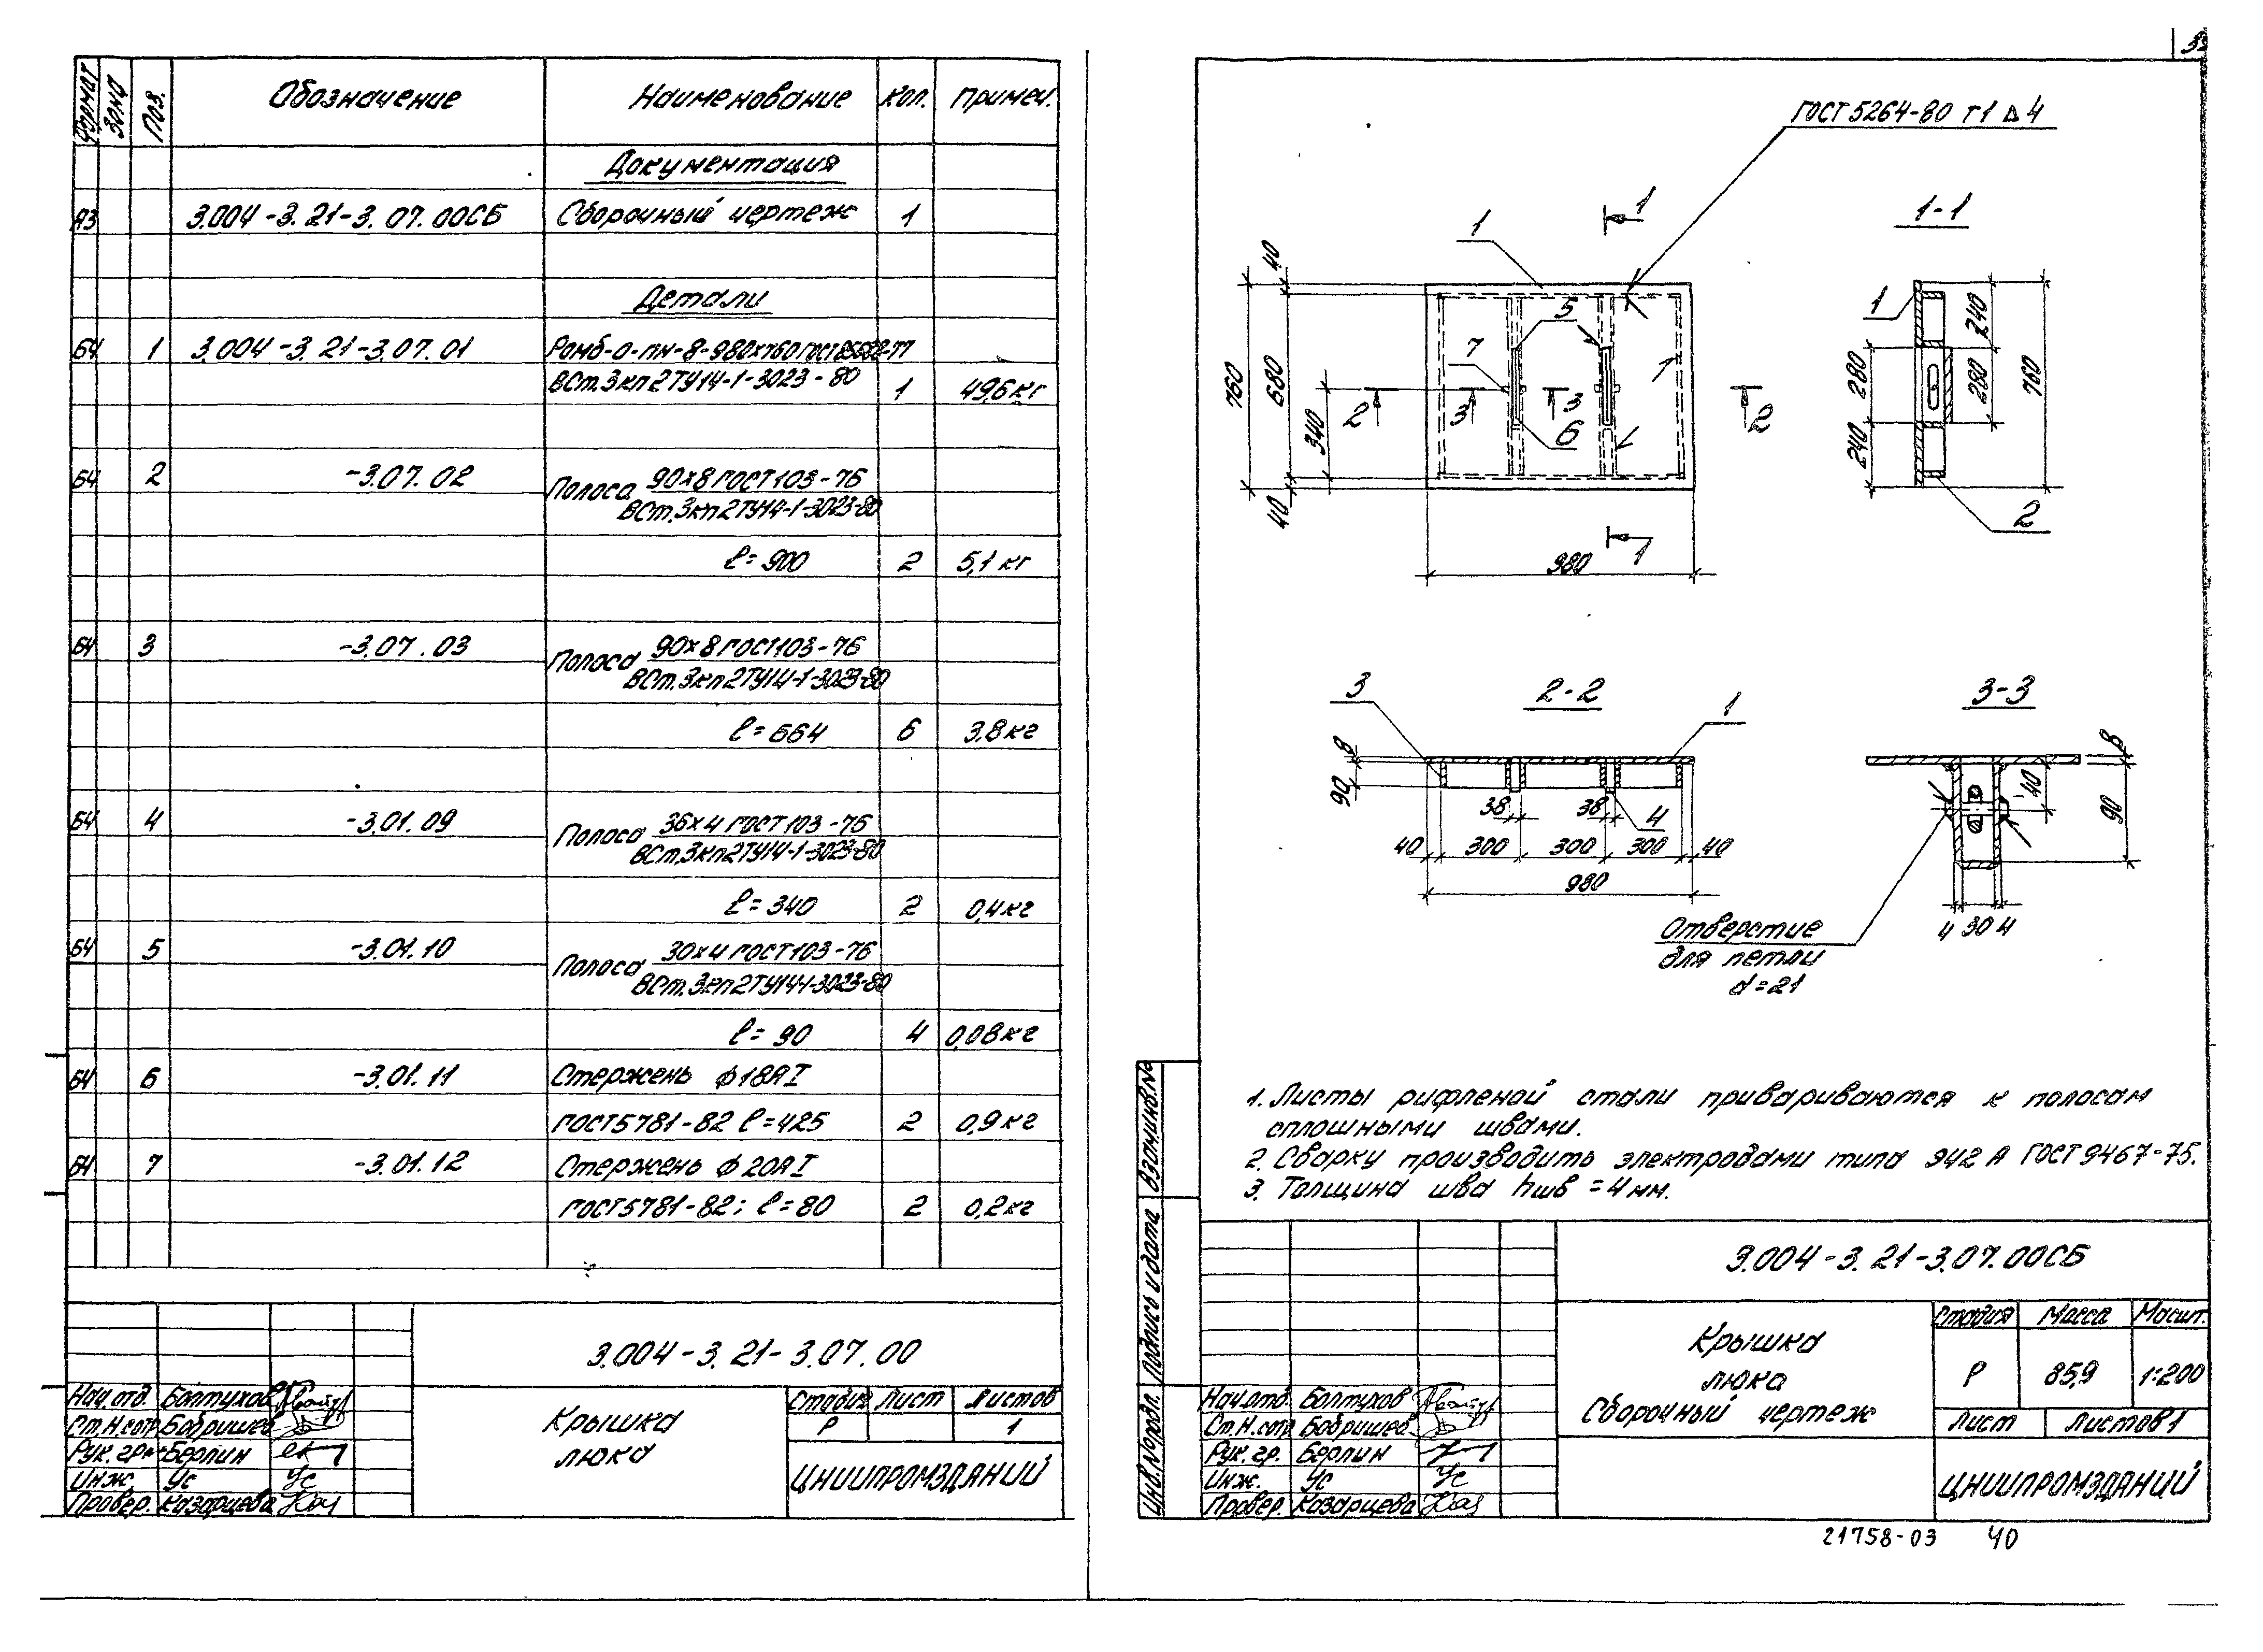 Формат Зона Поз. Обозначение Наименование Кол. Примеч.
Документация
А3 3.004-3.21-3.07.00СБ Сборочный чертеж 1
Детали
Б4 1 3.004-3.21-3.07.01 Ромб-О-ПН-8-980х760 ГОСТ 8568-77
ВСт.3кп2ТУ14-1-3023-80 1 49,6кг
Б4 2 -3.07.02 Полоса 90х8 ГОСТ103-76
ВСт.3кп2ТУ14-1-3023-80
ℓ=900 2 5,1кг
Б4 3 -3.07.03 Полоса 90х8 ГОСТ103-76
ВСт.3кп2ТУ14-1-3023-80
ℓ=664 6 3,8кг
Б4 4 -3.01.09 Полоса 36х4 ГОСТ103-76
ВСт.3кп2ТУ14-1-3023-80
ℓ=340 2 0,4кг
Б4 5 -3.01.10 Полоса 30х4 ГОСТ103-76
ВСт.3кп2ТУ14-1-3023-80
ℓ=90 4 0,08кг
Б4 6 -3.01.11 Стержень ϕ18АI
ГОСТ5781-82 ℓ=425 2 0,9кг
Б4 7 -3.01.12 Стержень ϕ20АI
ГОСТ5781-82; ℓ=80 2 0,2кг
3.004-3.21-3.07.00
Нач.отд. Болтухов
Ст.Н.сотр Бобришев
Рук.гр. Берлин
Инж. Ус Ус
Провер. Казарцева Каз
Крышка
люка
Стадия Лист Листов
Р 1
ЦНИИПРОМЗДАНИЙ
ГОСТ 5264-80 Т1 ⊿ 4
1 1
40
760 680 340
40
5
7
2 3 3 2
6
1
980
1-1
1
240
280 280 760
240
2
2-2
3 1
8
90
38 38 4
40 300 300 300 40
980
3-3
8
40
90
4 30 4
Отверстие
для петли
d=21
1. Листы рифленой стали привариваются к полосам
сплошными швами.
2. Сварку производить электродами типа Э42А ГОСТ 9467-75.
3. Толщина шва hшв = 4мм.
Взам.инв.№
Подпись и дата
Инв.№ подл.
3.004-3.21-3.07.00СБ
Крышка
люка
Сборочный чертеж
Стадия Масса Масшт.
Р 85,9 1:200
Лист Листов 1
Нач.отд. Болтухов
Ст.Н.сотр Бобришев
Рук.гр. Берлин
Инж. Ус Ус
Провер. Казарцева Каз
ЦНИИПРОМЗДАНИЙ
21758-03 40